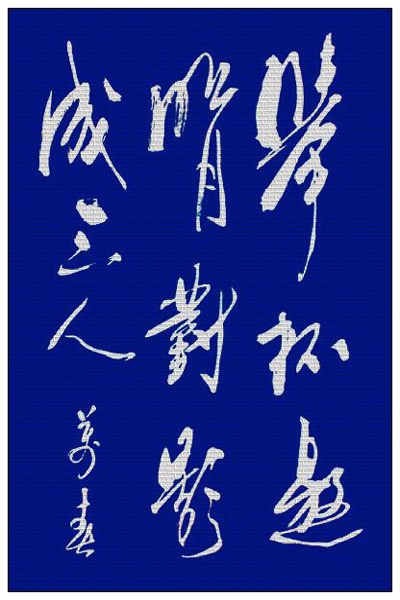 舉杯邀
明月對影
成三人
萬春